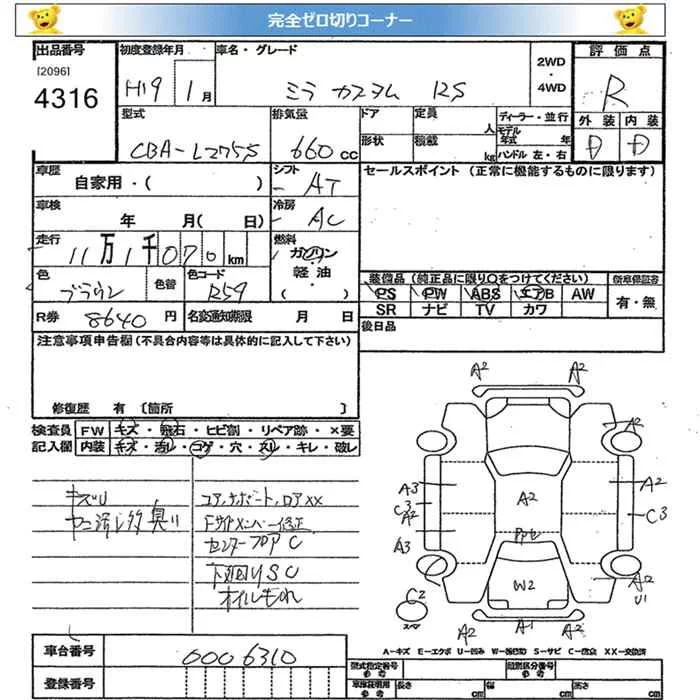 完全ゼロ切りコーナー
出品番号 初度登録年月 車名・グレード 2WD・4WD 評価点
[2096]
4316 H19 1月 ミラ カスタム RS R
型式 排気量 ドア 定員 人 ディーラー・並行 外装 内装
モデル年式 年
CBA-L275S 660cc 形状 積載 kg ハンドル 左・右 D D
車歴 シフト セールスポイント (正常に機能するものに限ります)
自家用・( ) AT
車検 冷房
年 月( 日) AC
走行 燃料
11万1千070km ガソリン
軽油
・( )
色 色替 色コード 装備品 (純正品に限り○をつけてください) 新車保証書
ブラウン R59 PS PW ABS エアB AW 有・無
SR ナビ TV カワ
R券 8640円 名変通知期限 月 日 後日品
注意事項申告欄 (不具合内容等は具体的に記入して下さい)
修復歴 有 [箇所 ]
検査員 FW キズ・飛石・ヒビ割・リペア跡・×要
記入欄 内装 キズ・汚レ・コゲ・穴・スレ・キレ・破レ
キズU コアサポート、ロアXX
臭い Fサイドメンバー修正
センターフロア C
下廻りSC
オイルもれ
A2 A2
A2
A3
C3
A2
A2
C3
A3
Ppセ
W2
A2
U1
C2
スペア
A2 A1 C2
A-キズ E-エクボ U-凹み W-補修跡 S-サビ C-腐食 XX-交換済
車台番号 0006310
登録番号
型式指定番号 参考 類別区分番号 参考
車庫証明用 参考 長さ 幅さ 高さ